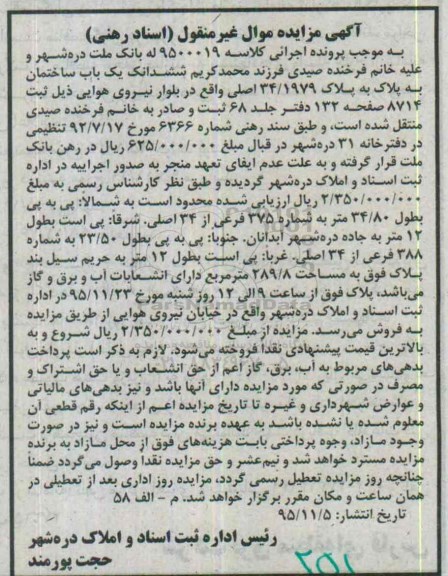 آگهی مزایده موال غیرمنقول (اسناد رهنی)
به موجب پرونده اجرائی کلاسه ۹۵۰۰۰۱۹ له بانک ملت دره‌شهر و
علیه خانم فرخنده صیدی فرزند محمدکریم ششدانک یک باب ساختمان
به پلاک به پلاک ۳۴/۱۹۷۹ اصلی واقع در بلوار نیروی هوایی ذیل ثبت
۸۷۱۴ صفحه ۱۳۲ دفتر جلد ۶۸ ثبت و صادر به خانم فرخنده صیدی
منتقل شده است، و طبق سند رهنی شماره ۶۳۶۶ مورخ ۹۲/۷/۱۷ تنظیمی
در دفترخانه ۳۱ دره‌شهر در قبال مبلغ ۶۲۵/۰۰۰/۰۰۰ ریال در رهن بانک
ملت قرار گرفته و به علت عدم ایفای تعهد منجر به صدور اجراییه در اداره
ثبت اسناد و املاک دره‌شهر گردیده و طبق نظر کارشناس رسمی به مبلغ
۲/۳۵۰/۰۰۰/۰۰۰ ریال ارزیابی شده محدود است به شمالا: پی به پی
بطول ۳۴/۸۰ متر به شماره ۳۷۵ فرعی از ۳۴ اصلی. شرقا: پی است بطول
۱۲ متر به جاده دره‌شهر آبدانان. جنوبا: پی به پی بطول ۲۳/۵۰ به شماره
۳۸۸ فرعی از ۳۴ اصلی. غربا: پی است بطول ۱۲ متر به حریم سیل بند
پلاک فوق به مساحت ۲۸۹/۸ مترمربع دارای انشعابات آب و برق و گاز
می‌باشد، پلاک فوق از ساعت ۹ الی ۱۲ روز شنبه مورخ ۹۵/۱۱/۲۳ در اداره
ثبت اسناد و املاک دره‌شهر واقع در خیابان نیروی هوایی از طریق مزایده
به فروش می‌رسد. مزایده از مبلغ ۲/۳۵۰/۰۰۰/۰۰۰ ریال شروع و به
بالاترین قیمت پیشنهادی نقدا فروخته می‌شود. لازم به ذکر است پرداخت
بدهی‌های مربوط به آب، برق، گاز اعم از حق انشعاب و یا حق اشتراک و
مصرف در صورتی که مورد مزایده دارای آنها باشد و نیز بدهی‌های مالیاتی
و عوارض شهرداری و غیره تا تاریخ مزایده اعم از اینکه رقم قطعی آن
معلوم شده یا نشده باشد به عهده برنده مزایده است و نیز در صورت
وجود مازاد، وجوه پرداختی بابت هزینه‌های فوق از محل مازاد به برنده
مزایده مسترد خواهد شد و نیم‌عشر و حق مزایده نقدا وصول می‌گردد ضمنا
چنانچه روز مزایده تعطیل رسمی گردد، مزایده روز اداری بعد از تعطیلی در
همان ساعت و مکان مقرر برگزار خواهد شد. م - الف ۵۸
تاریخ انتشار: ۹۵/۱۱/۵
رئیس اداره ثبت اسناد و املاک دره‌شهر
حجت پورمند